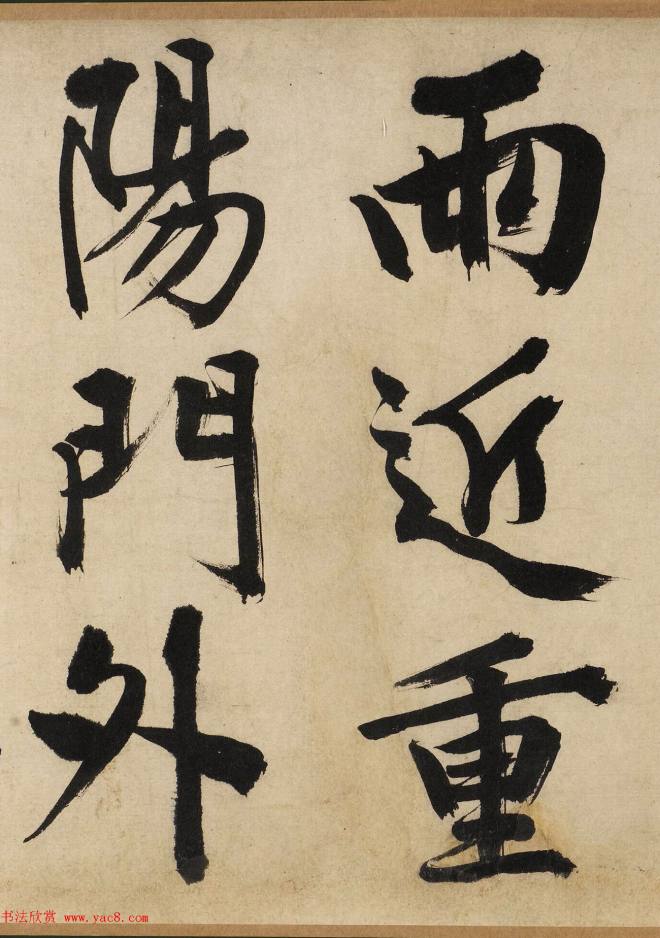 雨近重
陽門外
书法欣赏 www.yac8.com